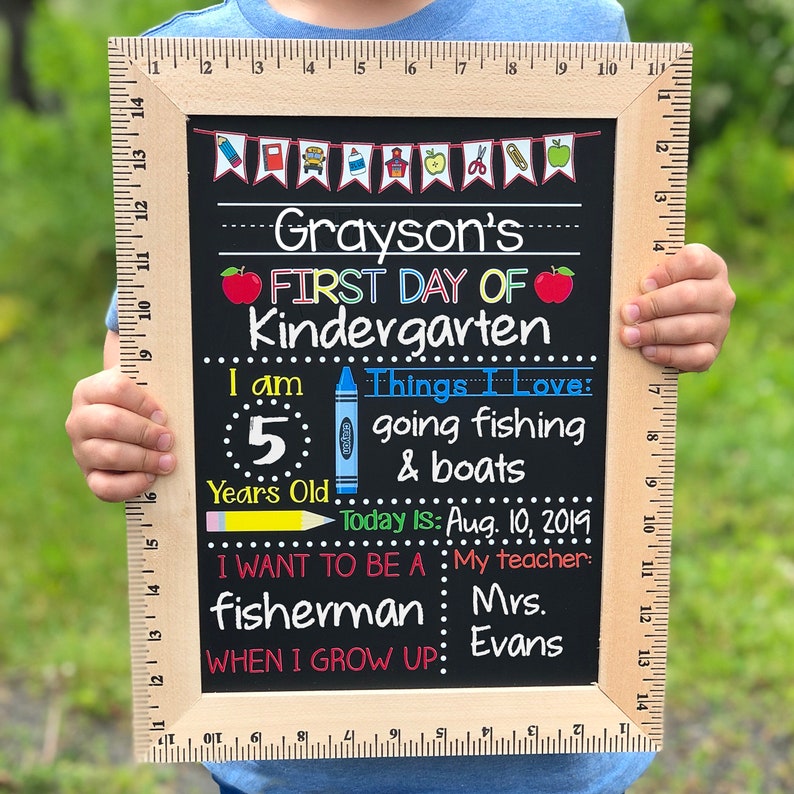 1 2 3 4 5 6 7 8 9 10 11
Grayson's
FIRST DAY OF
Kindergarten
I am
5
Years Old
crayon
Things I Love:
going fishing
& boats
Today Is: Aug. 10, 2019
I WANT TO BE A
fisherman
WHEN I GROW UP
My teacher:
Mrs.
Evans